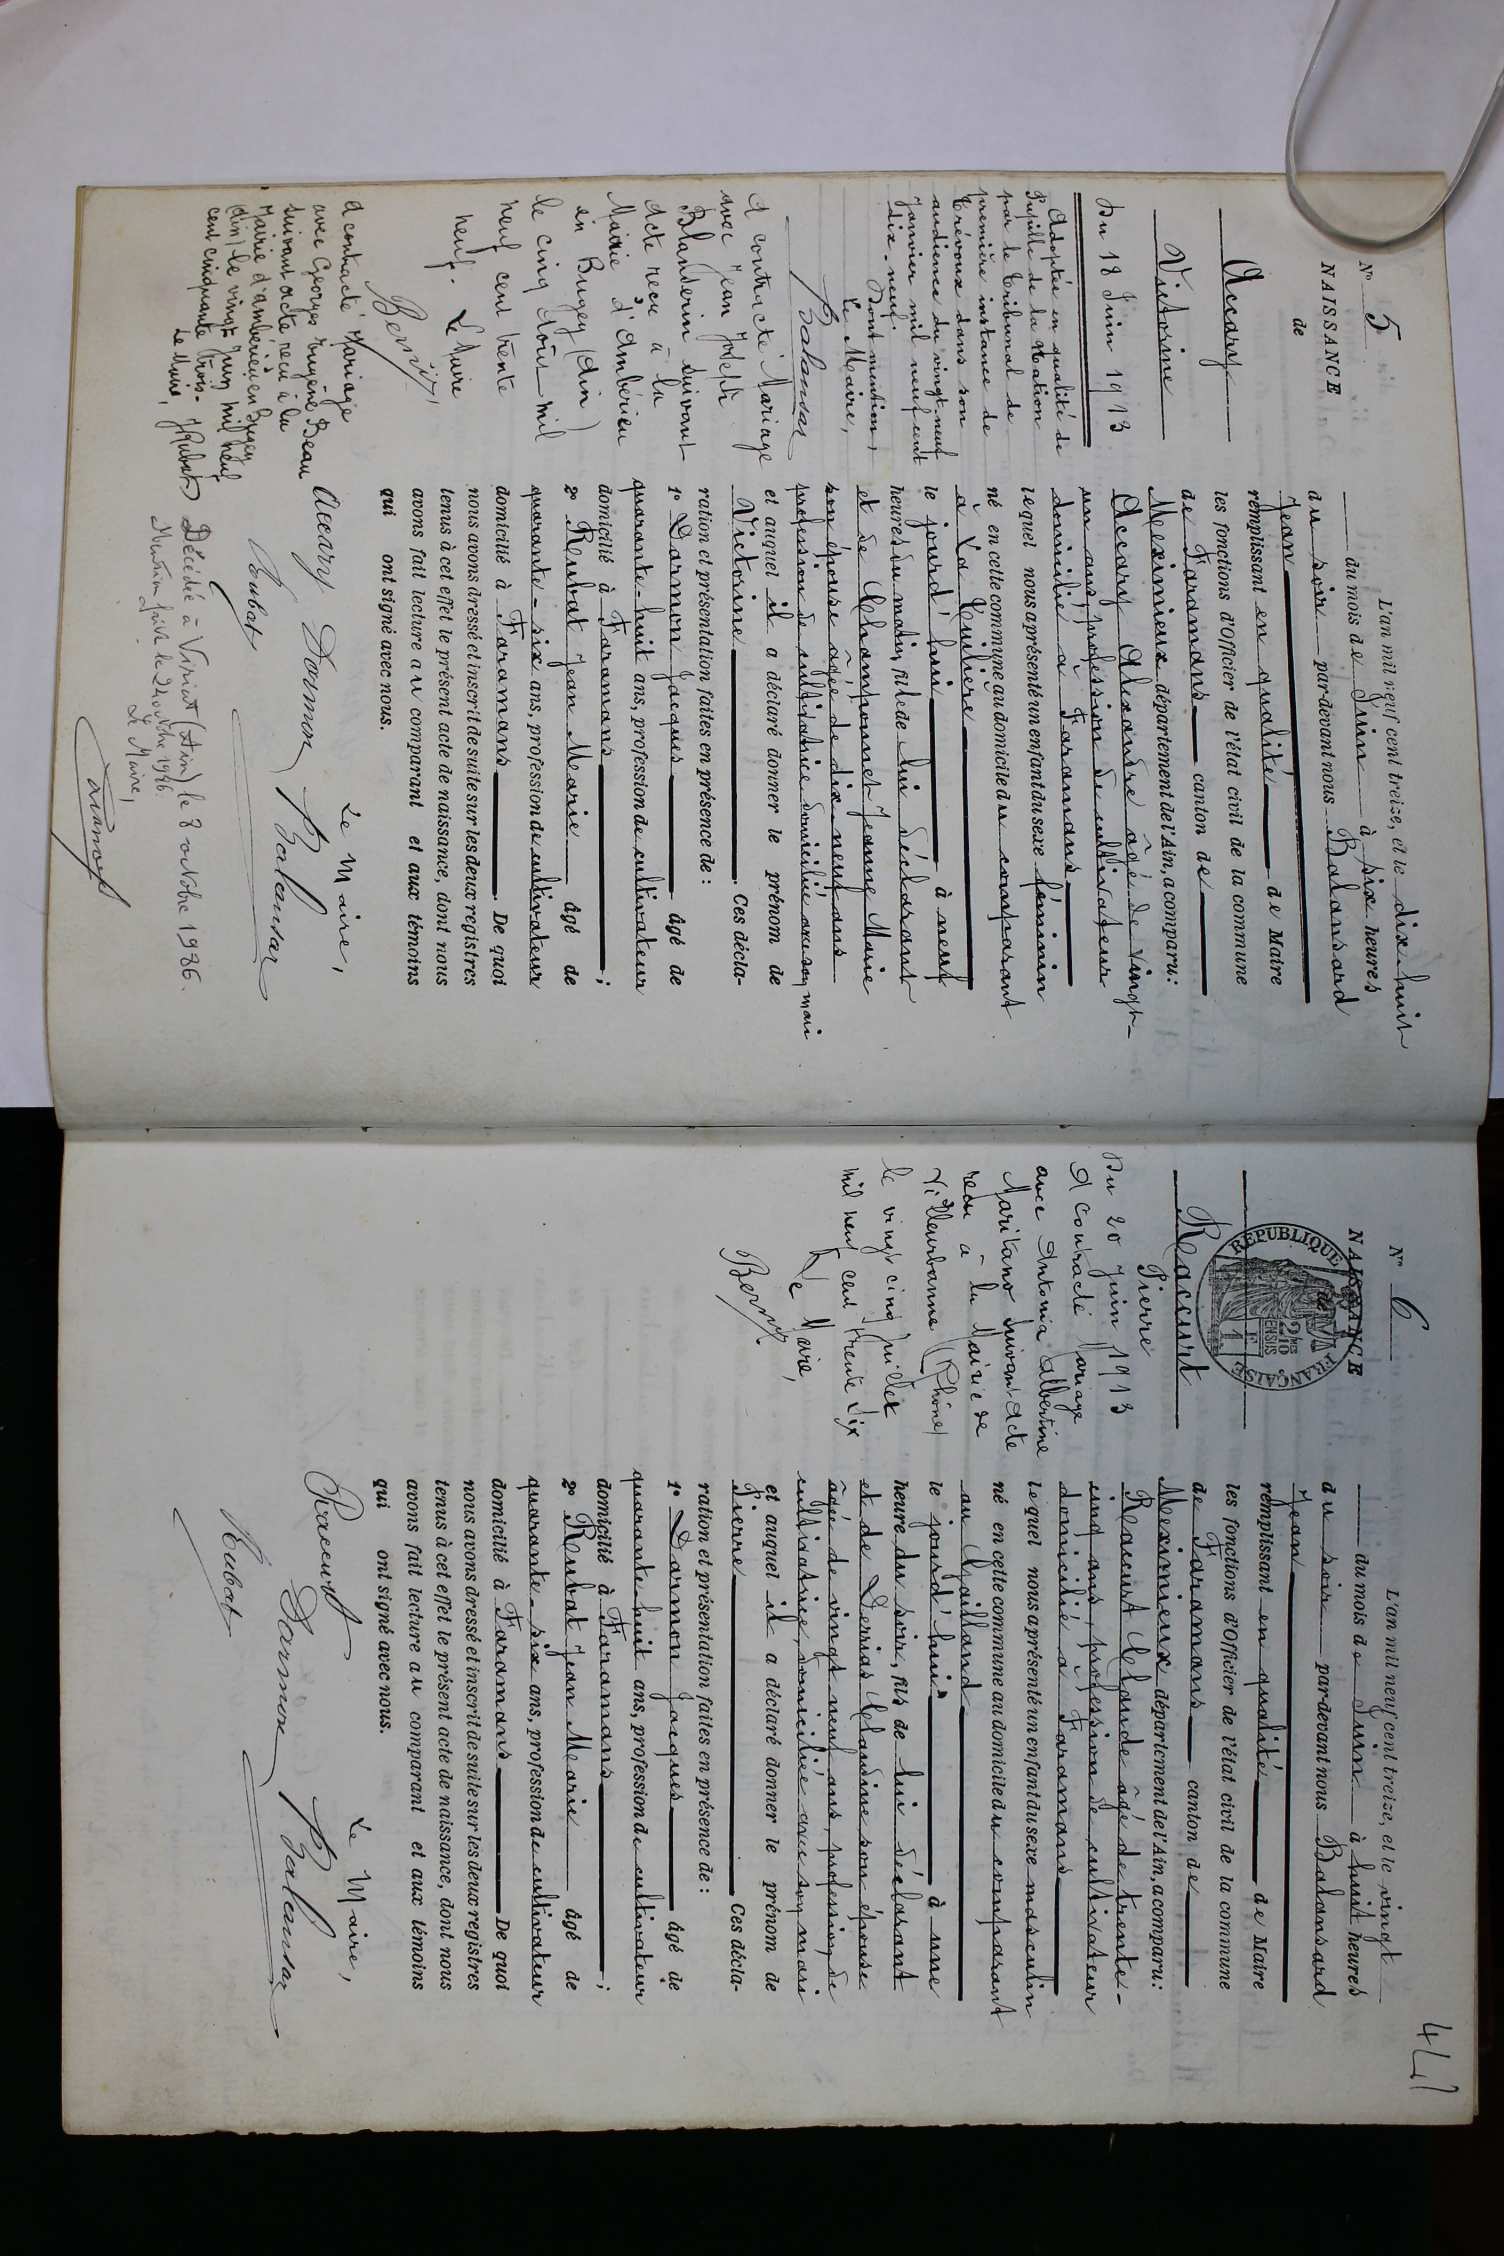 N° 5
NAISSANCE
de
Accary
Victorine
Du 18 Juin 1913
Adoptée en qualité de
Pupille de la Nation
par le Tribunal de
première instance de
Trévoux dans son
audience du vingt-neuf
Janvier mil neuf cent
dix-neuf.
Dont mention,
Le Maire,
Balansar
A contracté Mariage
avec Jean Joseph
Blanderin suivant
acte recu à la
Mairie d'Ambérieu
en Bugey (Ain)
le cinq Août mil
neuf cent trente
neuf. Le Maire
A contracté Mariage
avec Georges Eugène Beau
suivant acte recu à la
Mairie d'ambérieu en Bugey
(Ain) le vingt Juin mil neuf
cent cinquante trois.
Le Maire,
L'an mil neuf cent treize, et le dix-huit
du mois de Juin à six heures
du soir par-devant nous Balansard
Jean
remplissant en qualité de Maire
les fonctions d'Officier de l'état civil de la commune
de Faramans canton de
Meximieux département de l'Ain, a comparu:
Accary Alexandre âgé de vingt-
un ans, profession de cultivateur
domicilié à Faramans
lequel nous a présenté un enfant du sexe féminin
né en cette commune au domicile du comparant
à La Tuilière
le jourd'hui à neuf
heures du matin, fille de lui déclarant
et de Chantionnet Jeanne Marie
son épouse âgée de dix-neuf ans
profession de cultivatrice domiciliée avec son mari
et auquel il a déclaré donner le prénom de
Victorine Ces décla-
ration et présentation faites en présence de:
1° Darmon Jacques âgé de
quarante-huit ans, profession de cultivateur
domicilié à Faramans;
2° Rubat Jean Marie âgé de
quarante-six ans, profession de cultivateur
domicilié à Faramans. De quoi
nous avons dressé et inscrit de suite sur les deux registres
tenus à cet effet le présent acte de naissance, dont nous
avons fait lecture au comparant et aux témoins
qui ont signé avec nous.
Le Maire,
Accary Darmon Balansar
Rubat
Décédée à Viriat (Ain) le 8 octobre 1986.
Mention faite le 24 octobre 1986.
Le Maire,
441
N° 6
NAISSANCE
de
RÉPUBLIQUE FRANÇAISE
Raccurt
Pierre
Du 20 Juin 1913
A contracté Mariage
avec Antonia Albertine
Maritano suivant acte
recu à la Mairie de
Villeurbanne (Rhône)
le vingt cinq Juillet
mil neuf cent trente six
Le Maire,
L'an mil neuf cent treize, et le vingt
du mois de Juin à huit heures
du soir par-devant nous Balansard
Jean
remplissant en qualité de Maire
les fonctions d'Officier de l'état civil de la commune
de Faramans canton de
Meximieux département de l'Ain, a comparu:
Raccurt Claude âgé de trente-
cinq ans, profession de cultivateur
domicilié à Faramans
lequel nous a présenté un enfant du sexe masculin
né en cette commune au domicile du comparant
au Gailland
le jourd'hui à une
heure du soir, fils de lui déclarant
et de Derrias Claudine son épouse
âgée de vingt neuf ans, profession de
cultivatrice, domiciliée avec son mari
et auquel il a déclaré donner le prénom de
Pierre Ces décla-
ration et présentation faites en présence de:
1° Darmon Jacques âgé de
quarante huit ans, profession de cultivateur
domicilié à Faramans;
2° Rubat Jean Marie âgé de
quarante-six ans, profession de cultivateur
domicilié à Faramans De quoi
nous avons dressé et inscrit de suite sur les deux registres
tenus à cet effet le présent acte de naissance, dont nous
avons fait lecture au comparant et aux témoins
qui ont signé avec nous.
Le Maire,
Raccurt Darmon Balansar
Rubat